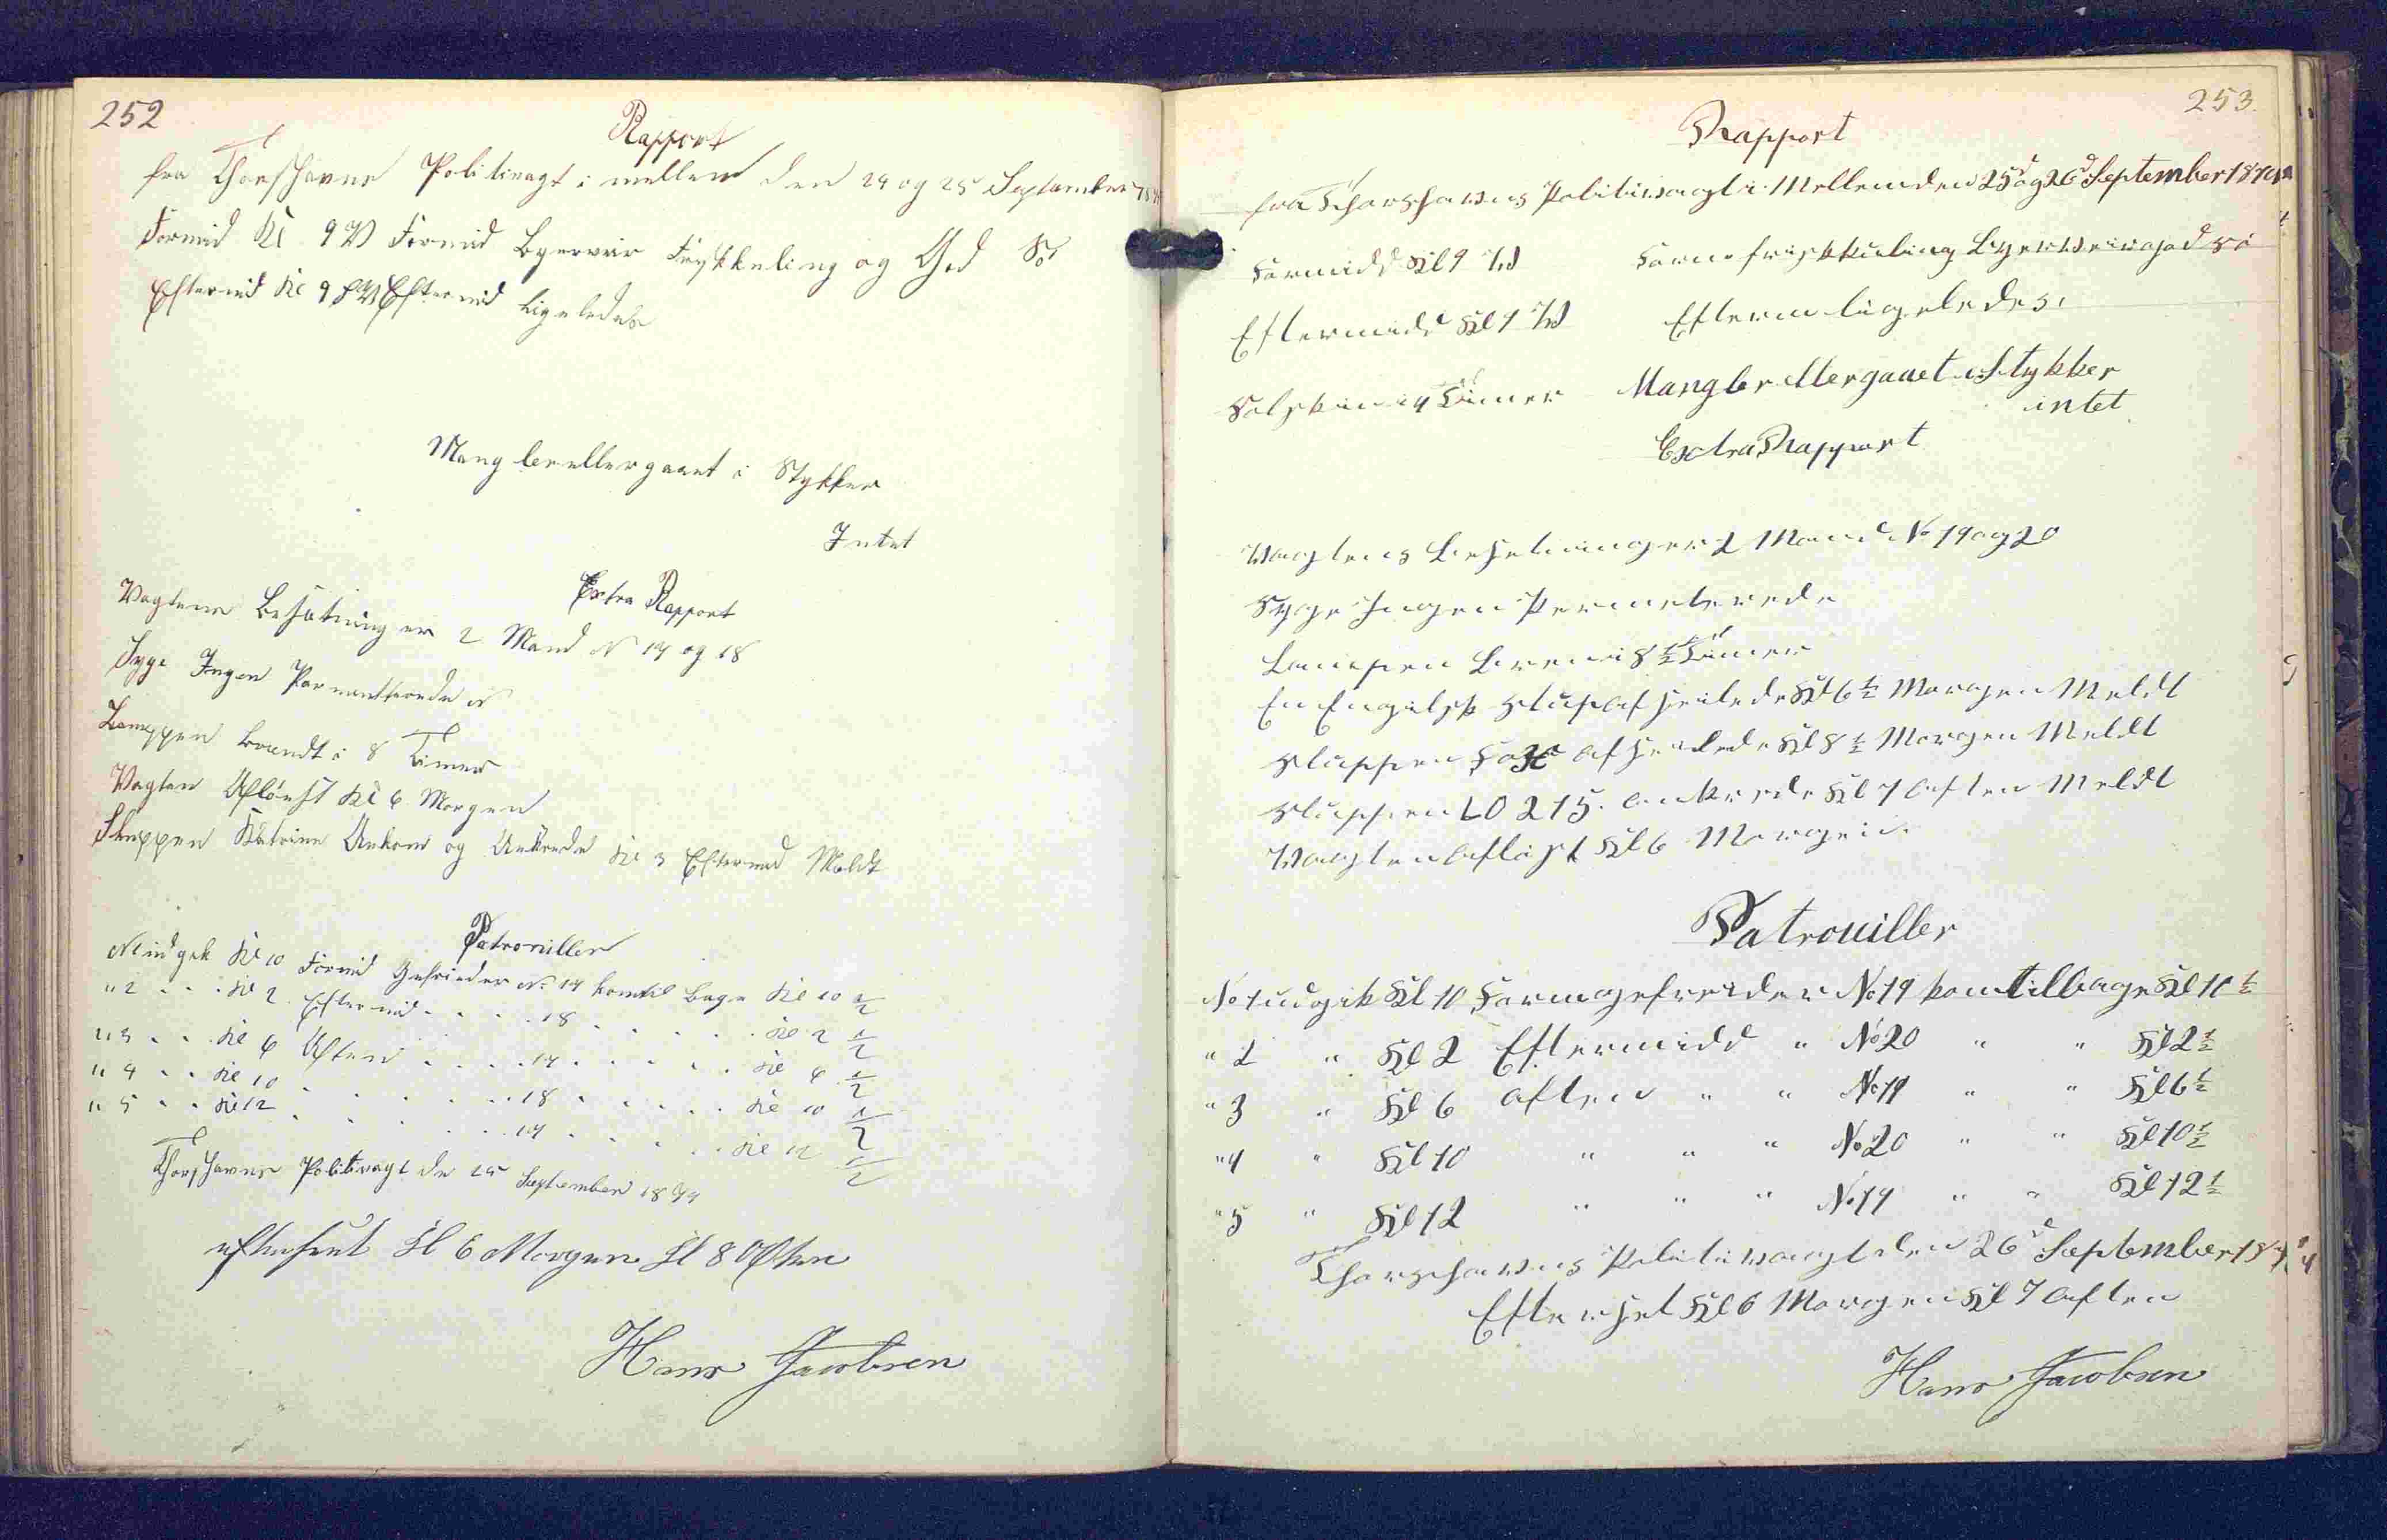 252
Rapport
fra Thorshavns Politivagt i mellem den 24 og 25 September
Formid Kl 9 V Formid Byerveir Friskkuling og God Sö
Eftermid Kl 9 Eftermid ligeledes
Mangler eller gaaet i Stykker
Intet
Extra Rapport
Vagtens Besætning er 2 Mand N 17 og 18
Syge Ingen Permenterende
Lampen brændt i 8 Timer
Vagten Aflöest Kl 6 Morgen
Sluppen Katrine Ankom og Ankrede Kl 3 Eftermid Meldt
Patrouiller
N 1 udgik Kl 10 Formid Gefrieder N 17 kom til bage Kl 10 1/2
" 2 . . . Kl 2 Eftermid . . . . 18 . . . . . . Kl 2 1/2
" 3 . . . Kl 6 Aften . . . . 17 . . . . . . Kl 6 1/2
" 4 . . Kl 10 . . . . . . 18 . . . . . . Kl 10 1/2
" 5 . . Kl 12 . . . . . . 17 . . . . . . Kl 12 1/2
Thorshavns Politivagt den 25 September 1874
efterseet Kl 6 Morgen Kl 8 Aften
Hans Jacobsen
253.
Rapport
fra Thorshavns Politivagt i Mellem den 25d og 26d September 1874
Formidd Kl 9 W Form friskkuling Byerveir god Sö
Eftermidd Kl 9 W Efterm ligeledes.
Solskin i 4 Timer Mangler ellergaaet i Stykker
intet
Extra Rapport
Wagtens Besetning er 2 Mand No 19 og 20
Syge Ingen Permeterede
Lampen Bren i 8 1/2 Timer
En Engelsk Slup afseilede Kl 6 1/2 Morgen Meldt
Sluppen Fox afseilede Kl 8 1/2 Morgen Meldt
Sluppen LO 215. ankrede Kl 7 Aften Meldt
Wagten aflöst Kl 6 Morgen.
Patrouiller
No 1 udgik Kl 10 Form gefreider No 19 kom tilbage Kl 10 1/2
" 2 " Kl 2 Eftermidd " No 20 " " Kl 2 1/2
" 3 " Kl 6 aften " " No 19 " " Kl 6 1/2
" 4 " Kl 10 " " " No 20 " " Kl 10 1/2
" 5 " Kl 12 " " " No 19 " " Kl 12 1/2
Thorshavns Politivagt den 26d September 1874
Efterset Kl 6 Morgen Kl 7 aften
Hans Jacobsen